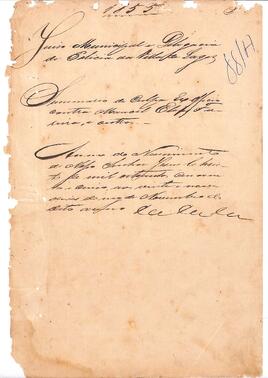 1855
H/88
Juizo Municipal e Delegacia
de Policia da Villa de Lages
Summario de Culpa Ex Officio
contra Manoel
e outro
Anno do Nascimento
de Nosso Senhor Jesus Christo
de mil oitocentos cincoenta
cinco, aos vinte e nove
dias do mez de Novembro do
dito anno